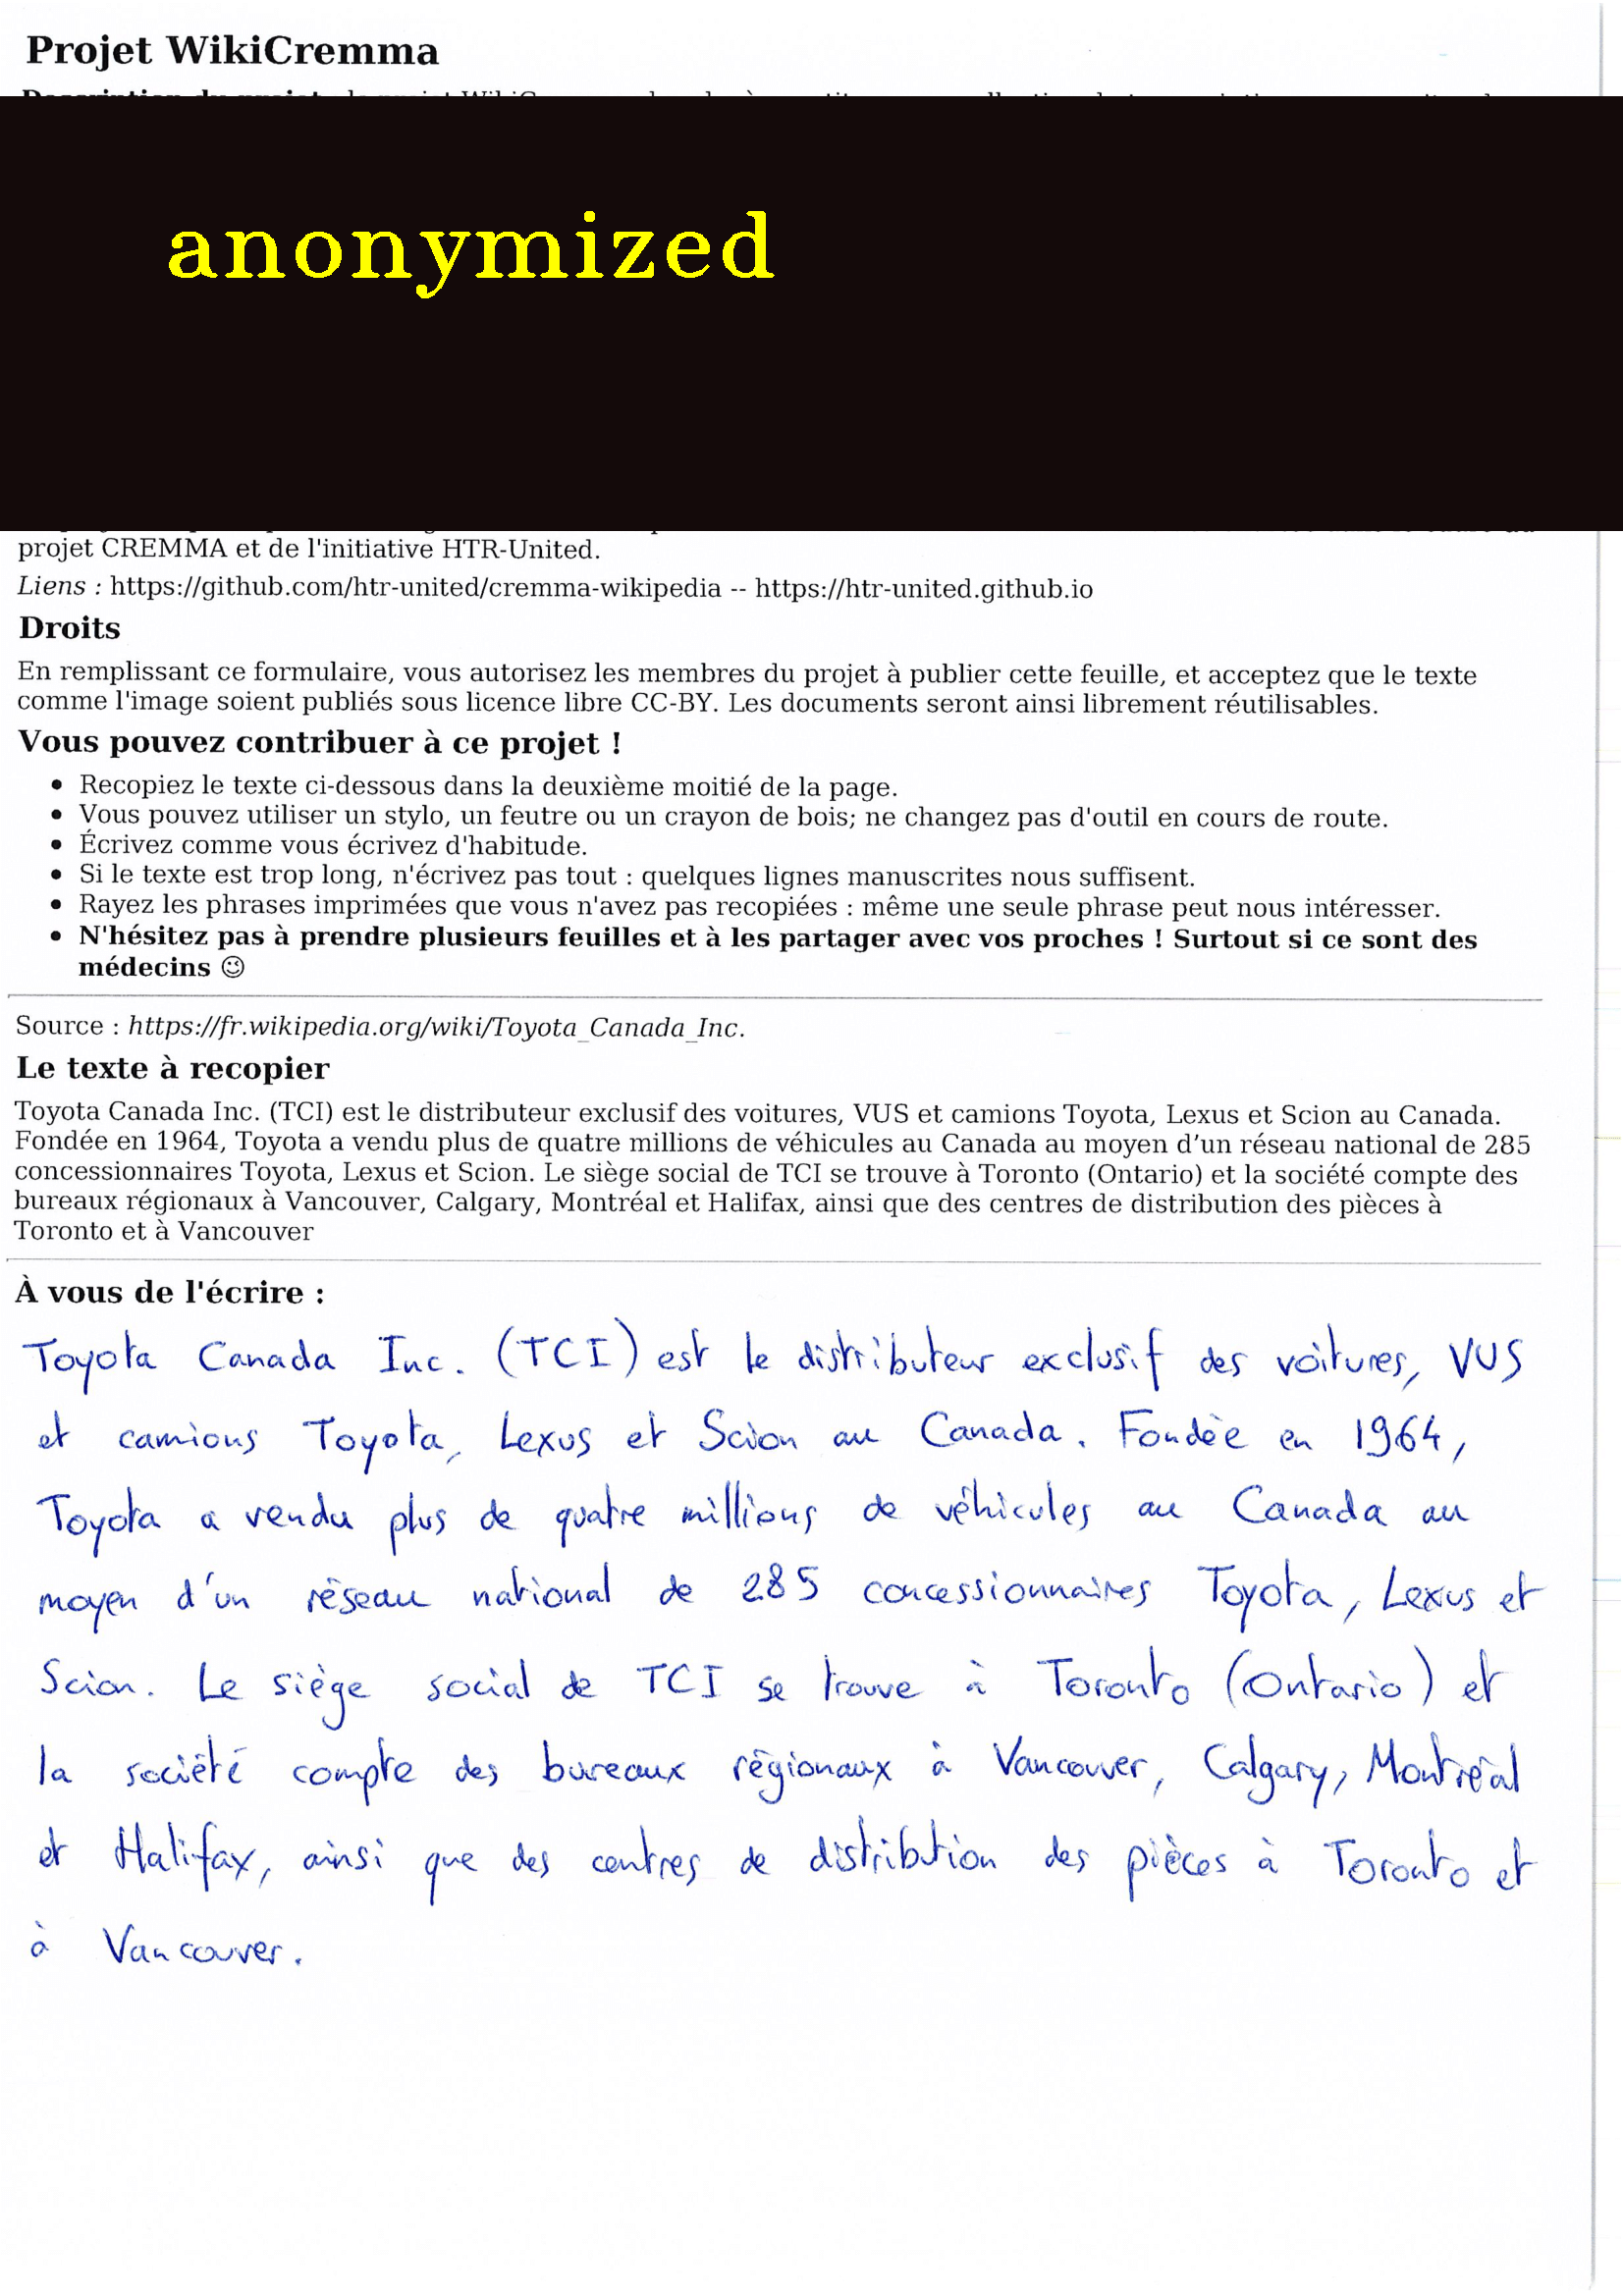 Projet WikiCremma
anonymized
projet CREMMA et de l'initiative HTR-United.
Liens : https://github.com/htr-united/cremma-wikipedia -- https://htr-united.github.io
Droits
En remplissant ce formulaire, vous autorisez les membres du projet à publier cette feuille, et acceptez que le texte
comme l'image soient publiés sous licence libre CC-BY. Les documents seront ainsi librement réutilisables.
Vous pouvez contribuer à ce projet !
• Recopiez le texte ci-dessous dans la deuxième moitié de la page.
• Vous pouvez utiliser un stylo, un feutre ou un crayon de bois; ne changez pas d'outil en cours de route.
• Écrivez comme vous écrivez d'habitude.
• Si le texte est trop long, n'écrivez pas tout : quelques lignes manuscrites nous suffisent.
• Rayez les phrases imprimées que vous n'avez pas recopiées : même une seule phrase peut nous intéresser.
• N'hésitez pas à prendre plusieurs feuilles et à les partager avec vos proches ! Surtout si ce sont des
médecins ☺
Source : https://fr.wikipedia.org/wiki/Toyota_Canada_Inc.
Le texte à recopier
Toyota Canada Inc. (TCI) est le distributeur exclusif des voitures, VUS et camions Toyota, Lexus et Scion au Canada.
Fondée en 1964, Toyota a vendu plus de quatre millions de véhicules au Canada au moyen d’un réseau national de 285
concessionnaires Toyota, Lexus et Scion. Le siège social de TCI se trouve à Toronto (Ontario) et la société compte des
bureaux régionaux à Vancouver, Calgary, Montréal et Halifax, ainsi que des centres de distribution des pièces à
Toronto et à Vancouver
À vous de l'écrire :
Toyota Canada Inc. (TCI) est le distributeur exclusif des voitures, VUS
et camions Toyota, Lexus et Scion au Canada. Fondée en 1964,
Toyota a vendu plus de quatre millions de véhicules au Canada au
moyen d'un réseau national de 285 concessionnaires Toyota, Lexus et
Scion. Le siège social de TCI se trouve à Toronto (Ontario) et
la société compte des bureaux régionaux à Vancouver, Calgary, Montréal
et Halifax, ainsi que des centres de distribution des pièces à Toronto et
à Vancouver.